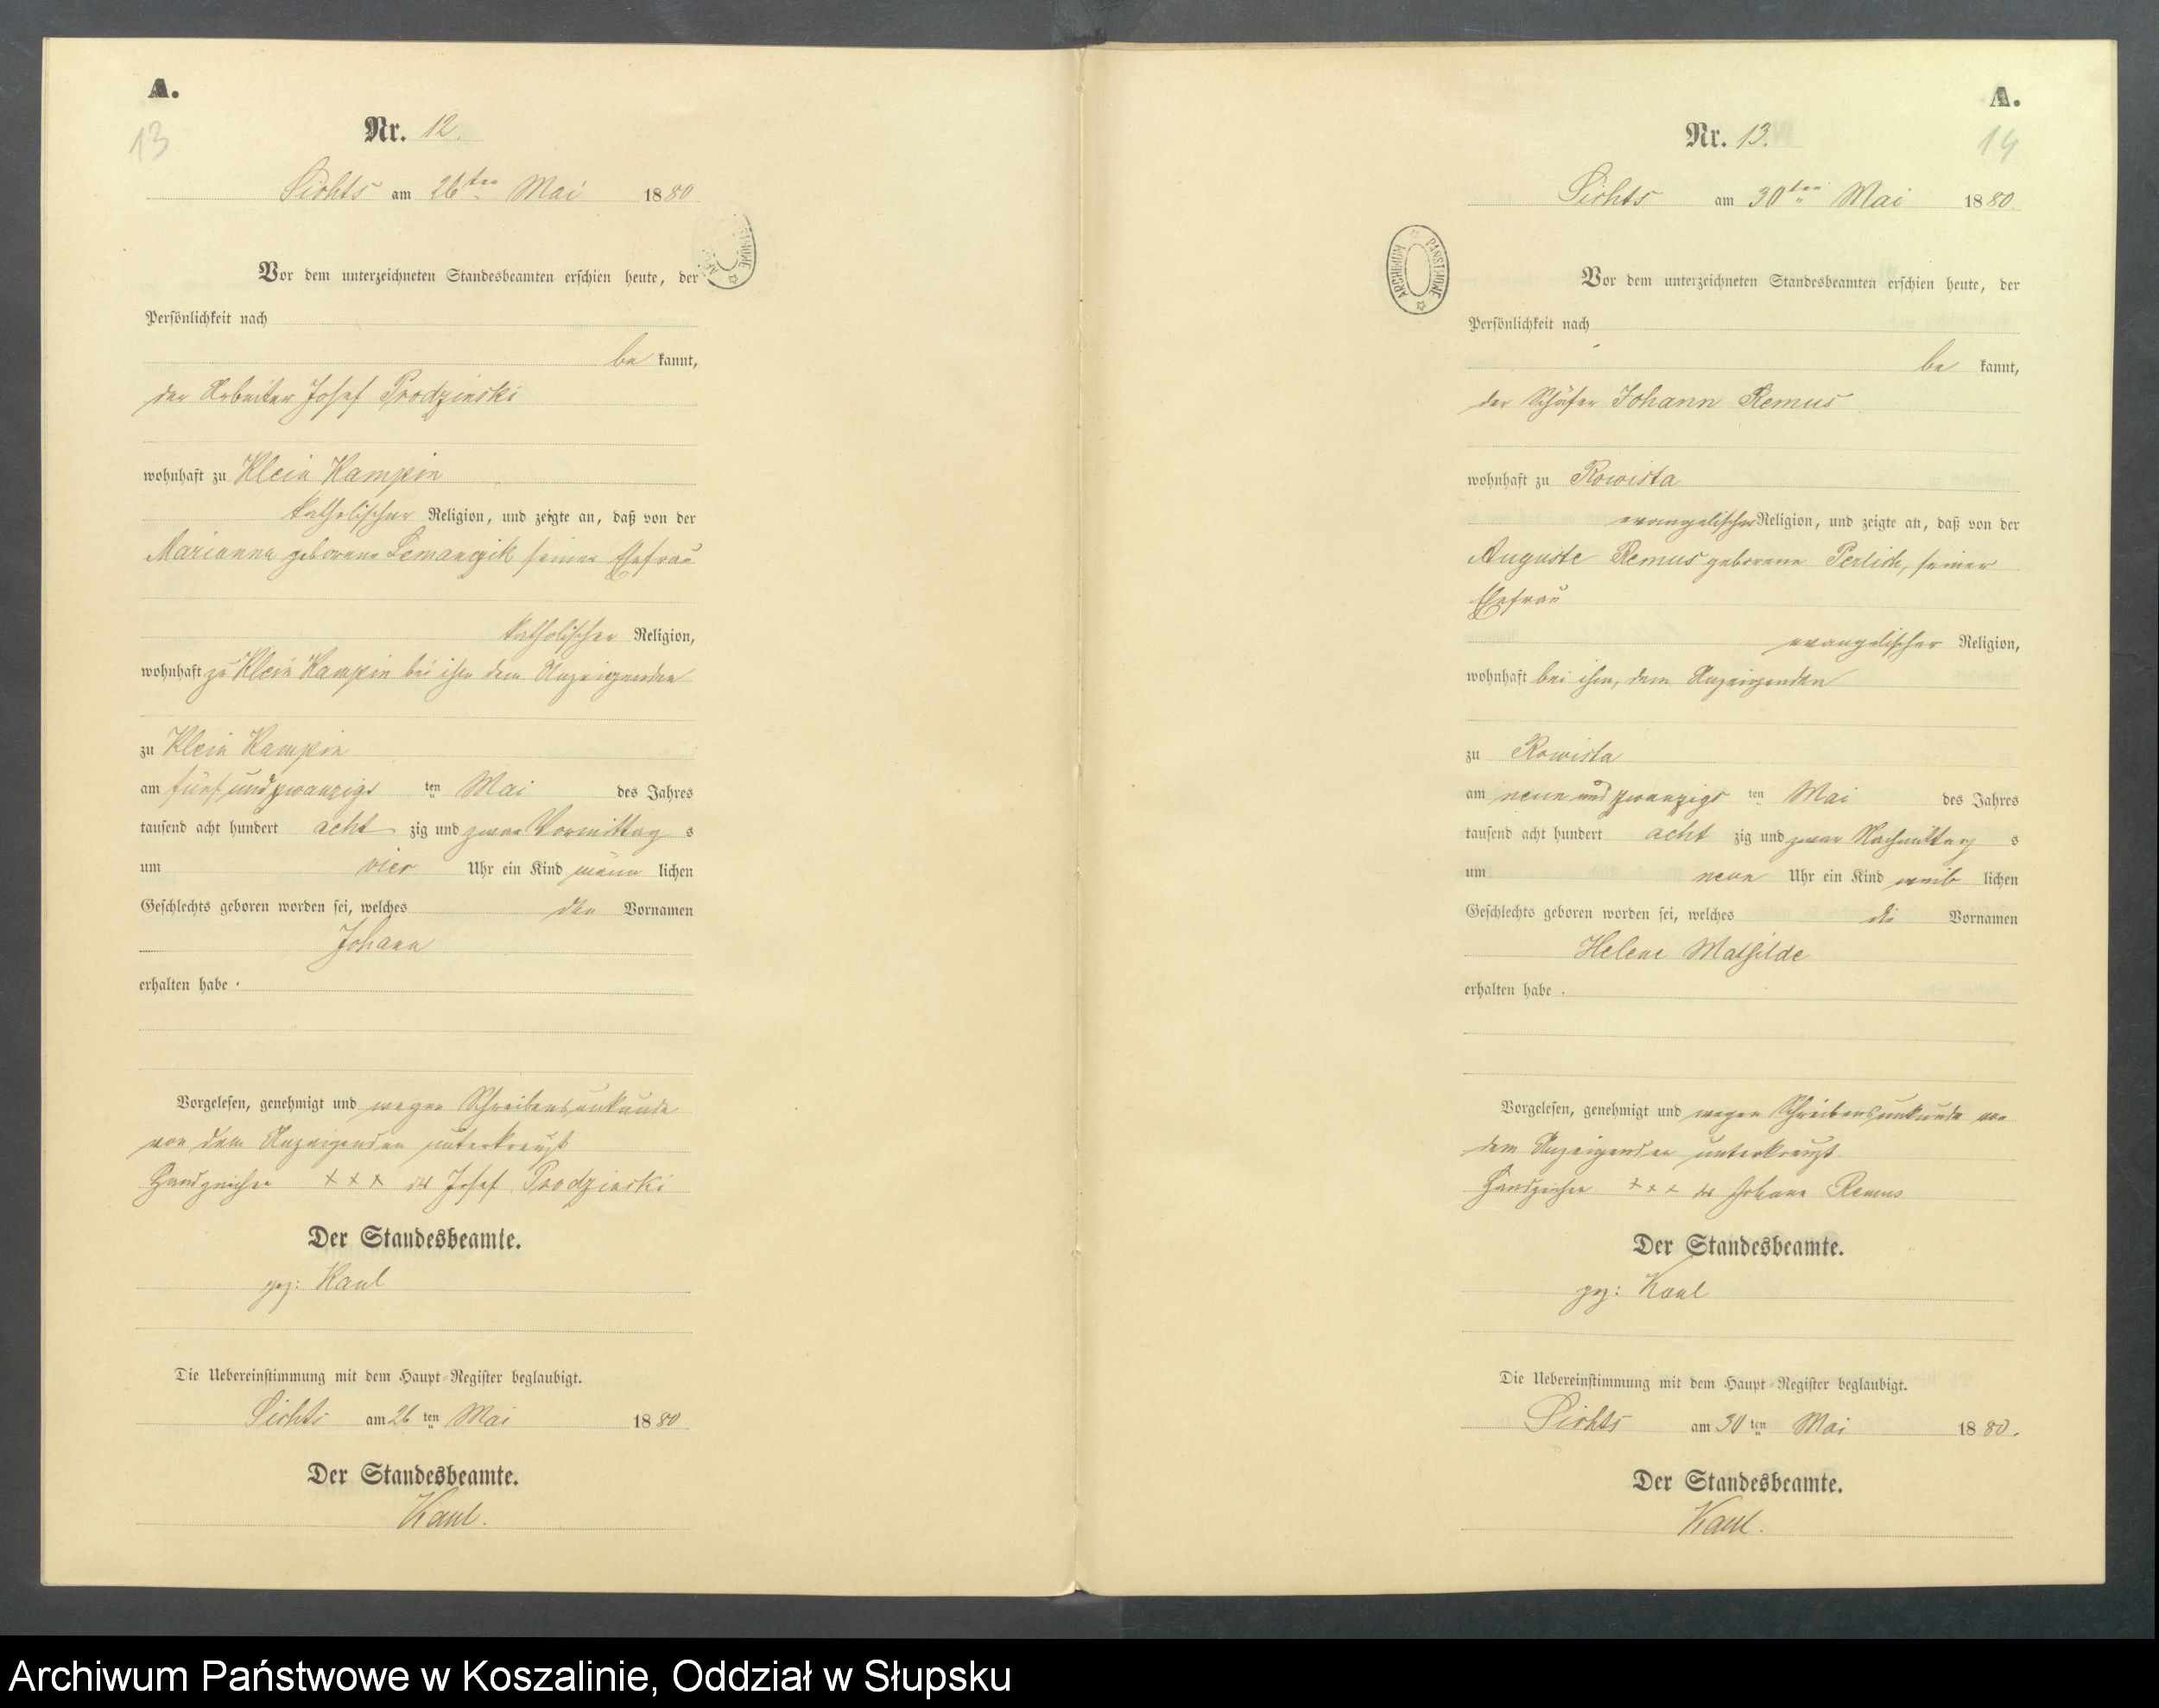 A.
13
Nr. 12.
Lichts am 26ten Mai 1880
Vor dem unterzeichneten Standesbeamten erschien heute, der
Persönlichkeit nach
be kannt,
der Arbeiter Josef Prodzinski
wohnhaft zu Klein Kampin
katholischer Religion, und zeigte an, daß von der
Marianna geborene Lemanczik seiner Ehefrau
katholischer Religion,
wohnhaft zu Klein Kampin bei ihm dem Anzeigenden
zu Klein Kampin
am fünf und zwanzigs ten Mai des Jahres
tausend acht hundert acht zig und zwar Vormittag s
um vier Uhr ein Kind männ lichen
Geschlechts geboren worden sei, welches den Vornamen
Johann
erhalten habe .
Vorgelesen, genehmigt und wegen Schreibensunkunde
von dem Anzeigenden unterkreuzt
Handzeichen + + + des Josef Prodzinski
Der Standesbeamte.
gez: Kaul
Die Uebereinstimmung mit dem Haupt-Register beglaubigt.
Lichts am 26 ten Mai 1880
Der Standesbeamte.
Kaul.
A.
14
Nr. 13.
Lichts am 30ten Mai 1880.
ARCHIWUM PAŃSTWOWE
Vor dem unterzeichneten Standesbeamten erschien heute, der
Persönlichkeit nach
be kannt,
der Schäfer Johann Remus
wohnhaft zu Rowista
evangelischer Religion, und zeigte an, daß von der
Auguste Remus geborene Perlich, seiner
Ehefrau
evangelischer Religion,
wohnhaft bei ihm, dem Anzeigenden
zu Rowista
am neun und zwanzigs ten Mai des Jahres
tausend acht hundert acht zig und zwar Nachmittag s
um neun Uhr ein Kind weib lichen
Geschlechts geboren worden sei, welches die Vornamen
Helene Mathilde
erhalten habe .
Vorgelesen, genehmigt und wegen Schreibensunkunde von
dem Anzeigenden unterkreuzt
Handzeichen + + + des Johann Remus
Der Standesbeamte.
gez: Kaul
Die Uebereinstimmung mit dem Haupt-Register beglaubigt.
Lichts am 30 ten Mai 1880.
Der Standesbeamte.
Kaul.
Archiwum Państwowe w Koszalinie, Oddział w Słupsku